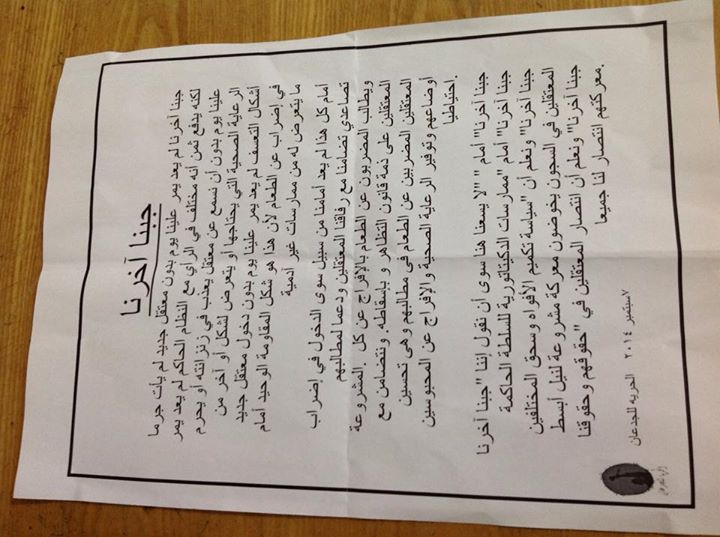 جبنا آخرنا
جبنا آخرنا لم يعد يمر علينا يوم بدون معتقل جديد لم يأت جرما
لكنه يدفع ثمن انه مختلف في الرأي مع النظام الحاكم لم يعد يمر
علينا يوم بدون أن نسمع عن معتقل يعذب في زنزانته أو يحرم
الرعاية الصحية التي يحتاجها أو يتعرض لشكل أو آخر من
أشكال التعسف لم يعد يمر علينا يوم بدون دخول معتقل جديد
في إضراب عن الطعام لأن هذا هو شكل المقاومة الوحيد أمام
ما يتعرض له من ممارسات غير آدمية
أمام كل هذا لم يعد أمامنا من سبيل سوى الدخول في إضراب
تصاعدي تضامنا مع رفاقنا المعتقلين ودعما لمطالبهم
ويطالب المضربون عن الطعام بالإفراج عن كل المشروعة
المعتقلين على ذمة قانون التظاهر و بإسقاطه. ونتضامن مع
المعتقلين المضربين عن الطعام فى مطالبهم وهى تحسين
أوضاعهم وتوفير الرعاية الصحية والإفراج عن المحبوسين
احتياطيا.
" لا يسعنا هنا سوى أن نقول إننا "جبنا آخرنا" أمام "جبنا آخرنا"
ممارسات الديكتاتورية للسلطة الحاكمة" أمام "جبنا آخرنا"
سياسة تكميم الأفواه وسحق المختلفين" ونعلم ان "جبنا آخرنا"
المعتقلين في السجون يخوضون معركة مشروعة لنيل أبسط
حقوقهم وحقوقنا" ونعلم أن انتصار المعتقلين في "جبنا آخرنا"
معركتهم انتصار لنا جميعا.
٧ سبتمبر ٢٠١٤ الحريه للجدعان